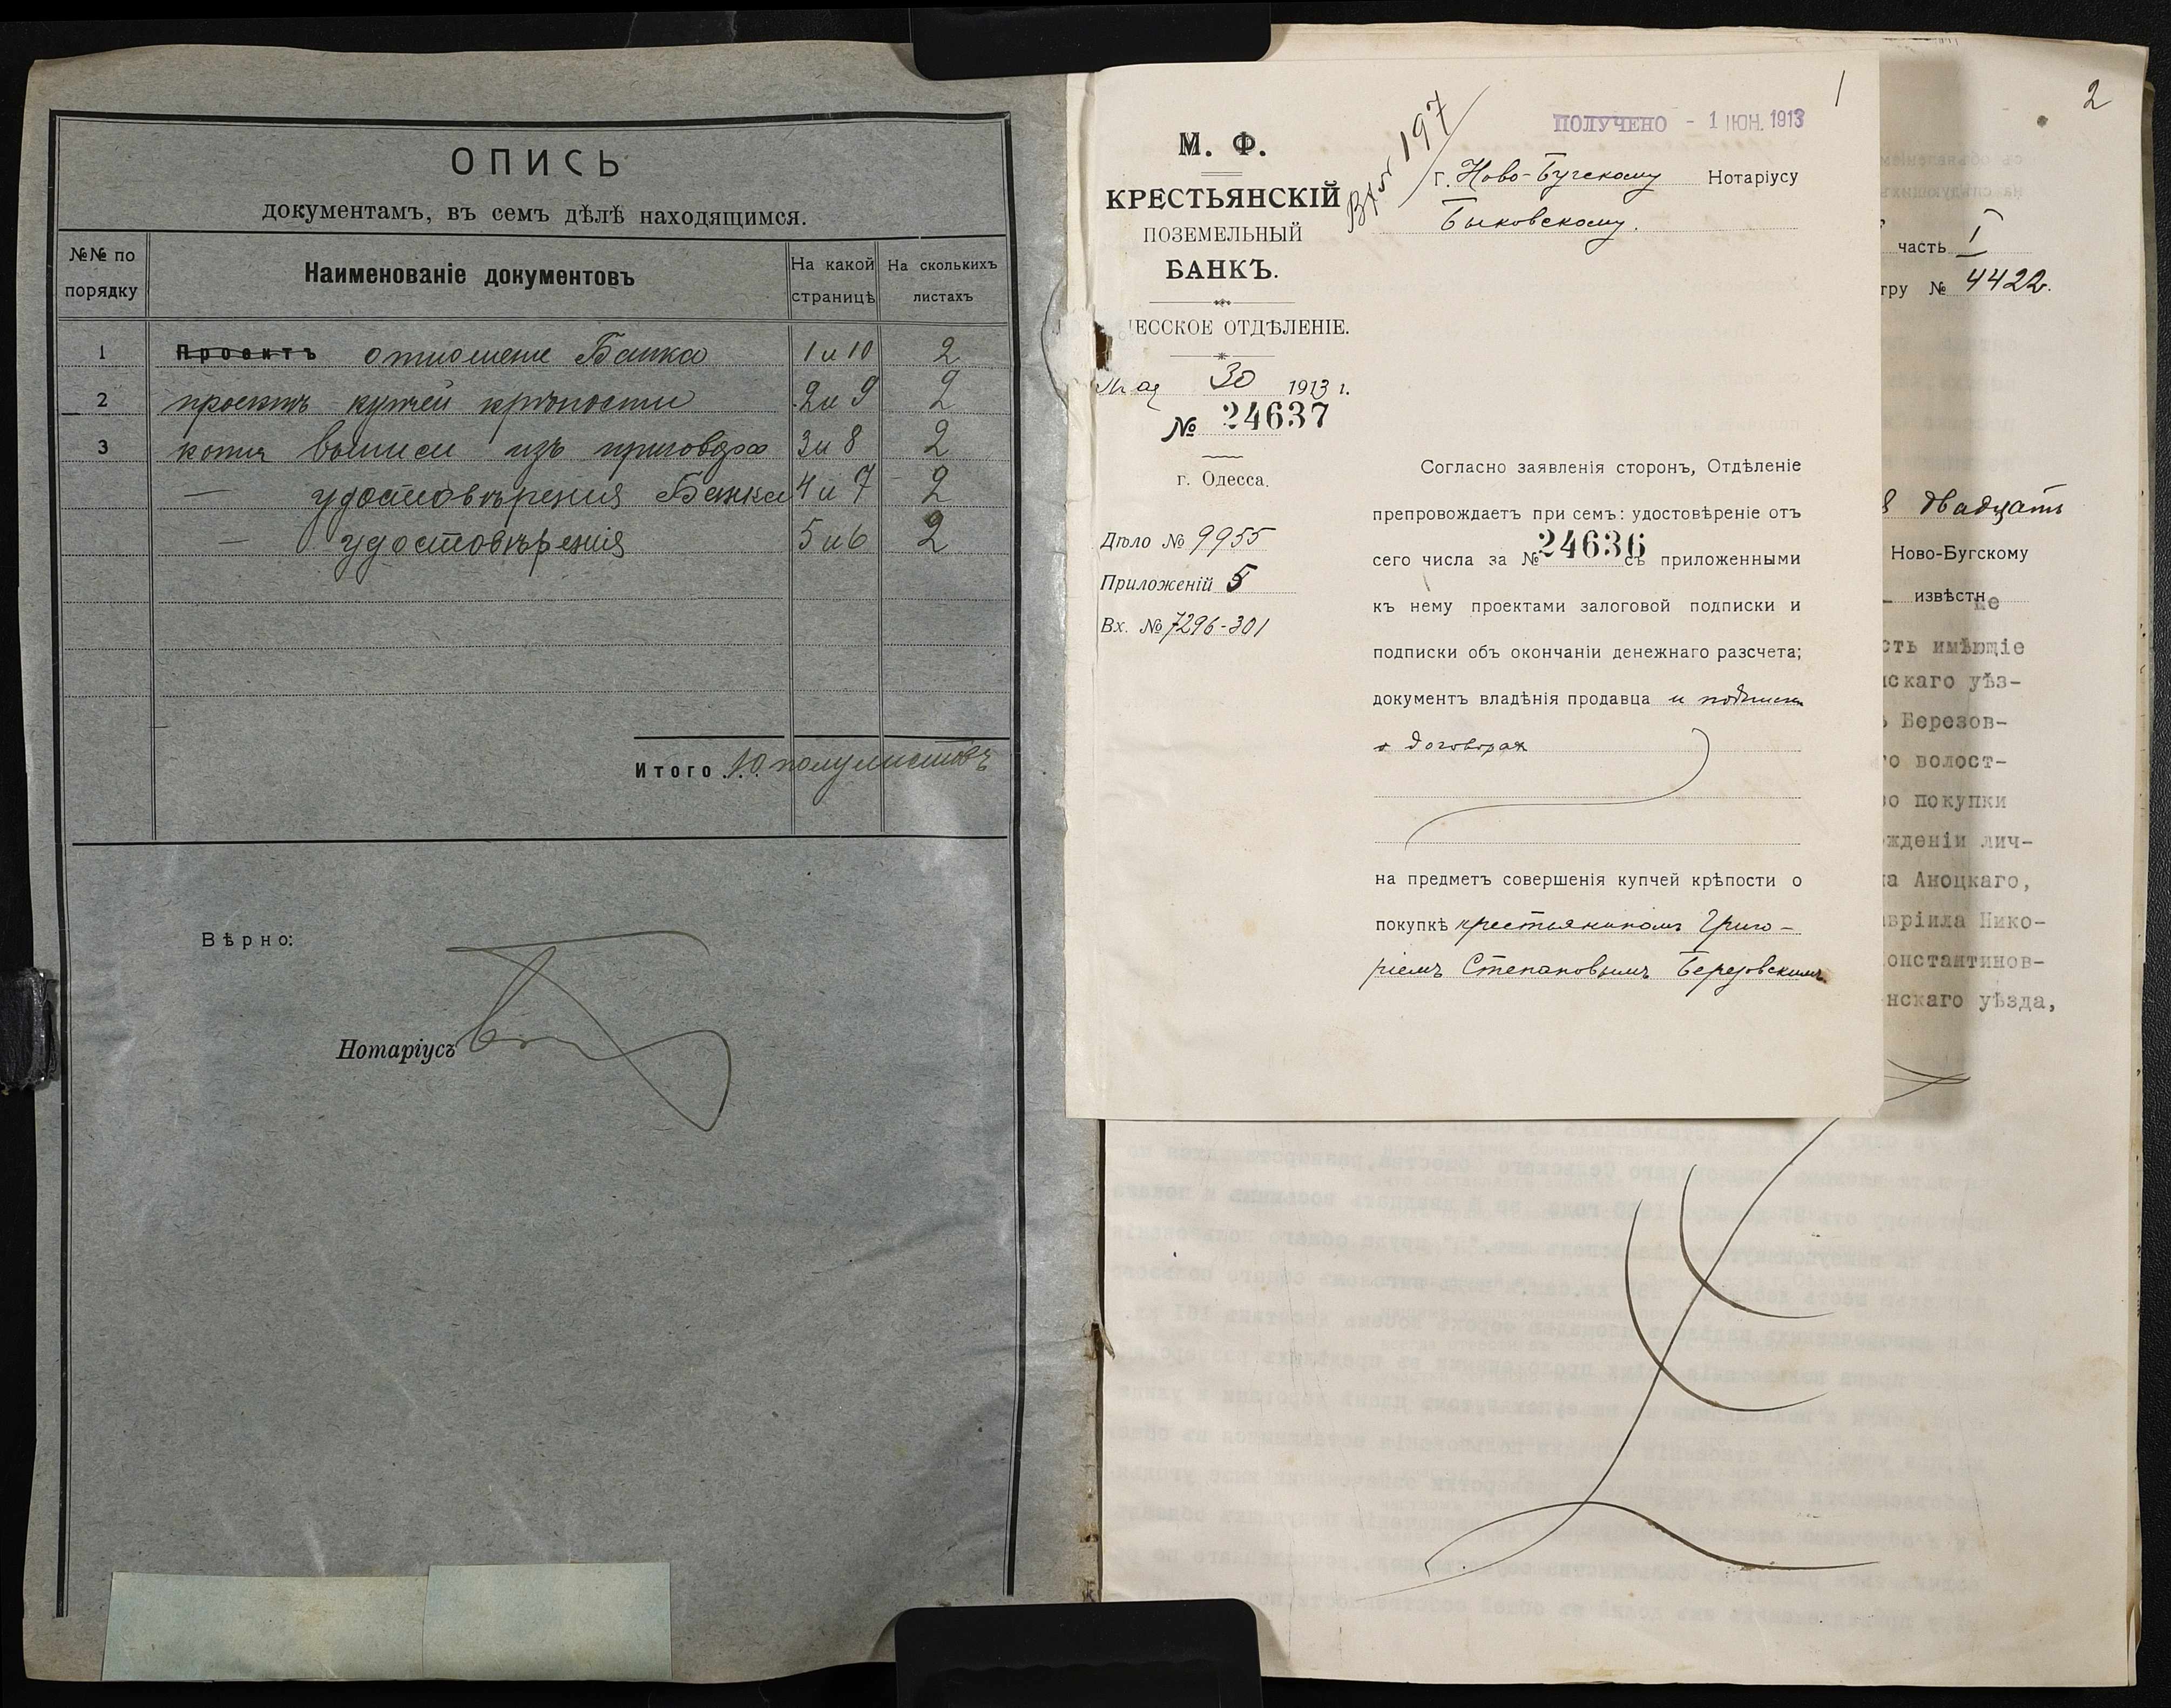 ОПИСЬ
документамъ, въ семъ дѣлѣ находящимся.
№№ по порядку
Наименованіе документовъ
На какой страницѣ
На сколькихъ листахъ
1 Проектъ отношение Банка 1 и 10 2
2 проектъ купчей крѣпости 2 и 9 2
3 копия выписи изъ приговора 3 и 8 2
— удостовѣрения Банка 4 и 7 2
— удостовѣрения 5 и 6 2
Итого... 10 полулистовъ
Вѣрно:
Нотаріусъ
1
ПОЛУЧЕНО - 1 ІЮН. 1913
Вх № 197
М. Ф.
КРЕСТЬЯНСКІЙ
ПОЗЕМЕЛЬНЫЙ
БАНКЪ.
ЕССКОЕ ОТДѢЛЕНІЕ.
Мая 30 1913 г.
№ 24637
г. Одесса.
Дѣло № 9955
Приложеній 5
Вх. № 7296-301
г. Ново-Бугскому Нотаріусу
Быковскому.
Согласно заявленія сторонъ, Отдѣленіе
препровождаетъ при семъ: удостовѣреніе отъ
сего числа за № 24636 съ приложенными
къ нему проектами залоговой подписки и
подписки объ окончаніи денежнаго разсчета;
документъ владѣнія продавца и подписки
о договорах
на предметъ совершенія купчей крѣпости о
покупкѣ крестьяниномъ Григо-
ріемъ Степановымъ Березовскимъ
2
часть I
тру № 4422.
двадцать
Ново-Бугскому
извѣстн не
сть имѣющіе
скаго уѣз-
Березов-
го волост-
во покупки
жденіи лич-
на Аноцкаго,
авріила Нико-
онстантинов-
нскаго уѣзда,